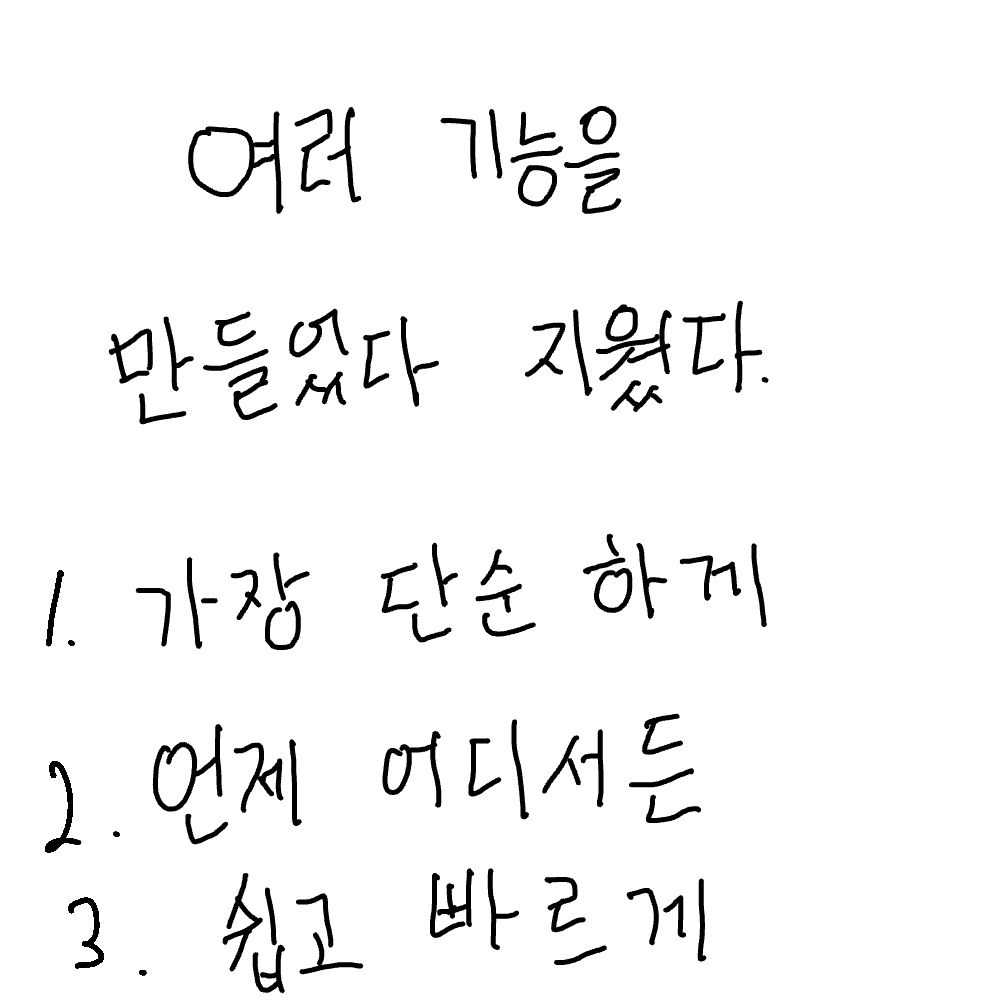 여러 기능을
만들었다 지웠다.
1. 가장 단순 하게
2. 언제 어디서든
3. 쉽고 빠르게